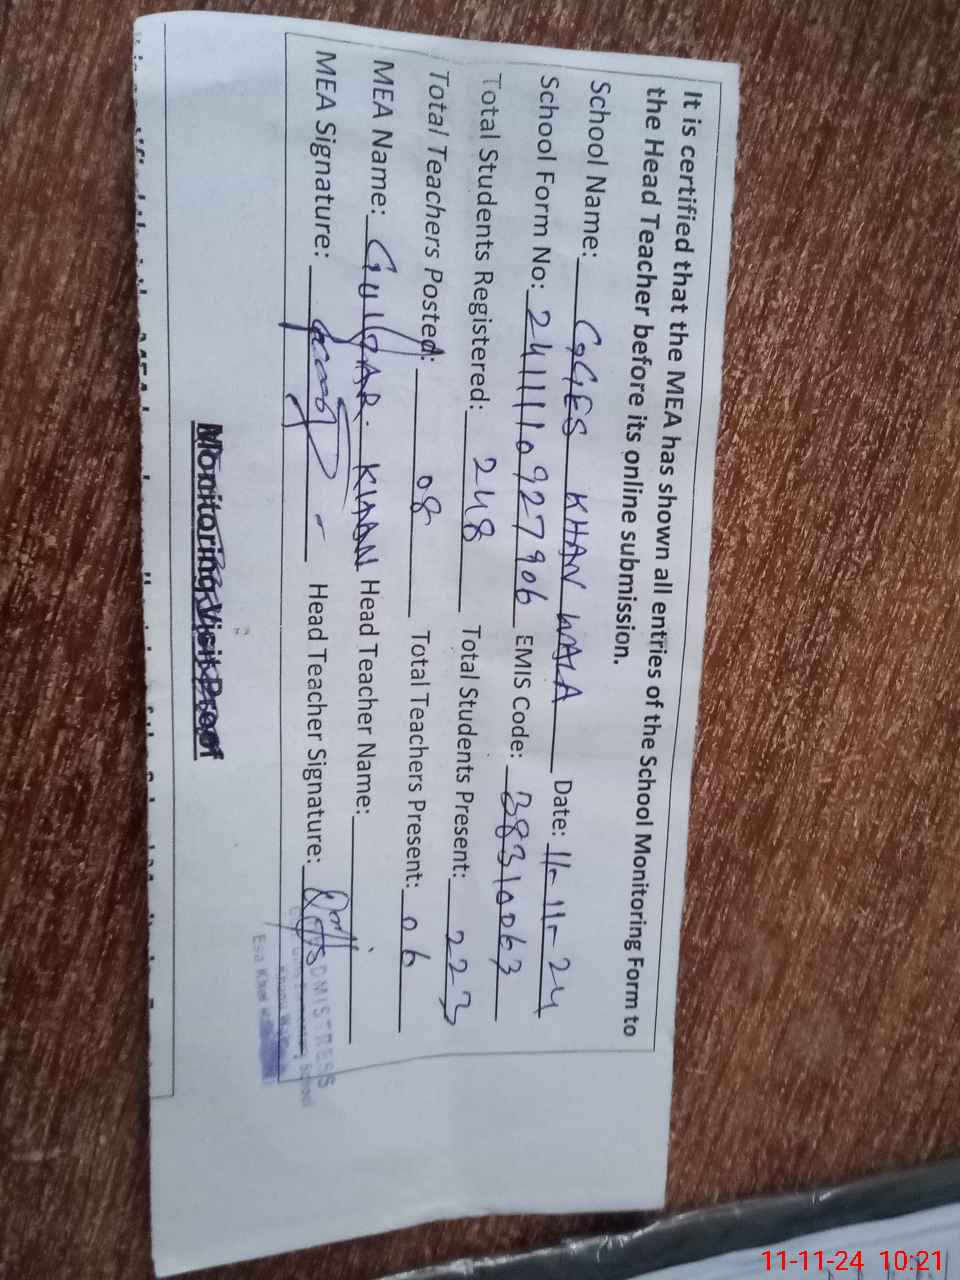 It is certified that the MEA has shown all entries of the School Monitoring Form to
the Head Teacher before its online submission.
School Name: GGES KHAN WALA Date: 11-11-24
School Form No: 241111092790​6 EMIS Code: 38310063
Total Students Registered: 248 Total Students Present: 223
Total Teachers Posted: 08 Total Teachers Present: 06
MEA Name: GULZAR KHAN Head Teacher Name:
MEA Signature: Head Teacher Signature:
School
Esa Khel
Monitoring Visit Proof
11-11-24 10:21